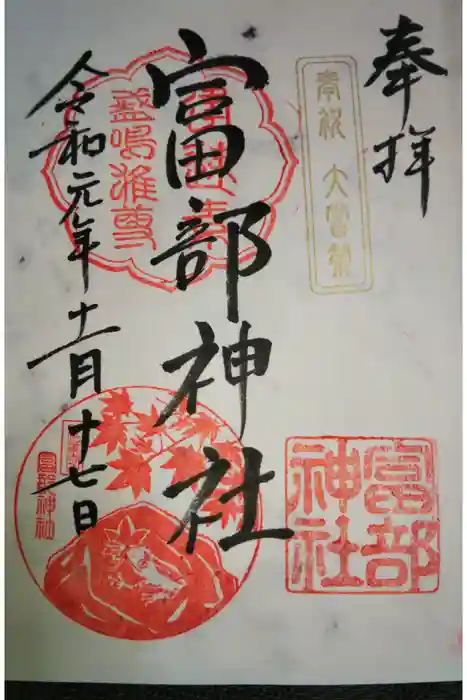 奉拝
奉祝 大嘗祭
富部神社
富部
神社
令和元年十一月十七日
富部神社